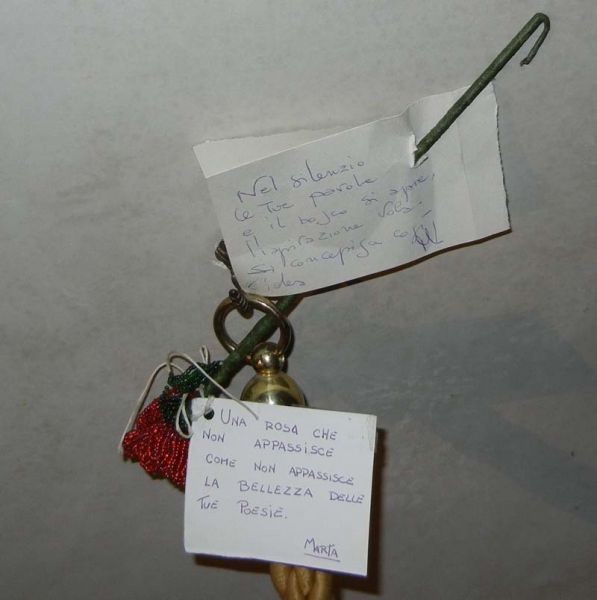 Nel silenzio
le Tue parole
e il bosco si apre,
l'ispirazione vola.
Si concepisca così
l'idea
UNA ROSA CHE
NON APPASSISCE
COME NON APPASSISCE
LA BELLEZZA DELLE
TUE POESIE.
MARTA